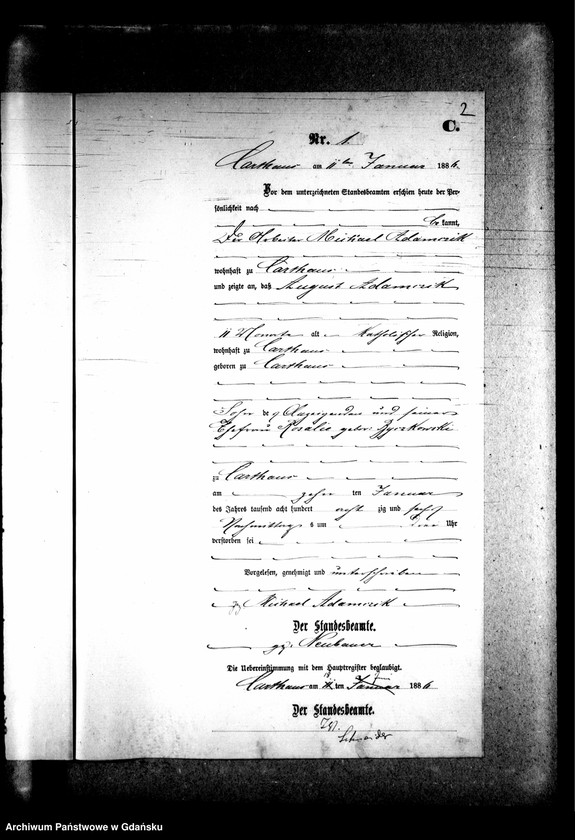 2
C.
Nr. 1.
Carthaus am 11ten Januar 1886.
Vor dem unterzeichneten Standesbeamten erschien heute der Per-
sönlichkeit nach
be kannt,
Der Arbeiter Michael Adamczik
wohnhaft zu Carthaus
und zeigte an, daß August Adamczik
11 Monate alt Katholischer Religion,
wohnhaft zu Carthaus
geboren zu Carthaus
Sohn des Anzeigenden und seiner
Ehefrau Rosalie gebor.
zu Carthaus
am zehn ten Januar
des Jahres tausend acht hundert acht zig und sechs
Nachmittags um Uhr
verstorben sei
Vorgelesen, genehmigt und unterschrieben
gz Michael Adamczik
Der Standesbeamte.
gz. Neubauer
Die Uebereinstimmung mit dem Hauptregister beglaubigt.
Carthaus am ten Januar 1886
Der Standesbeamte.
Schneider
Archiwum Państwowe w Gdańsku